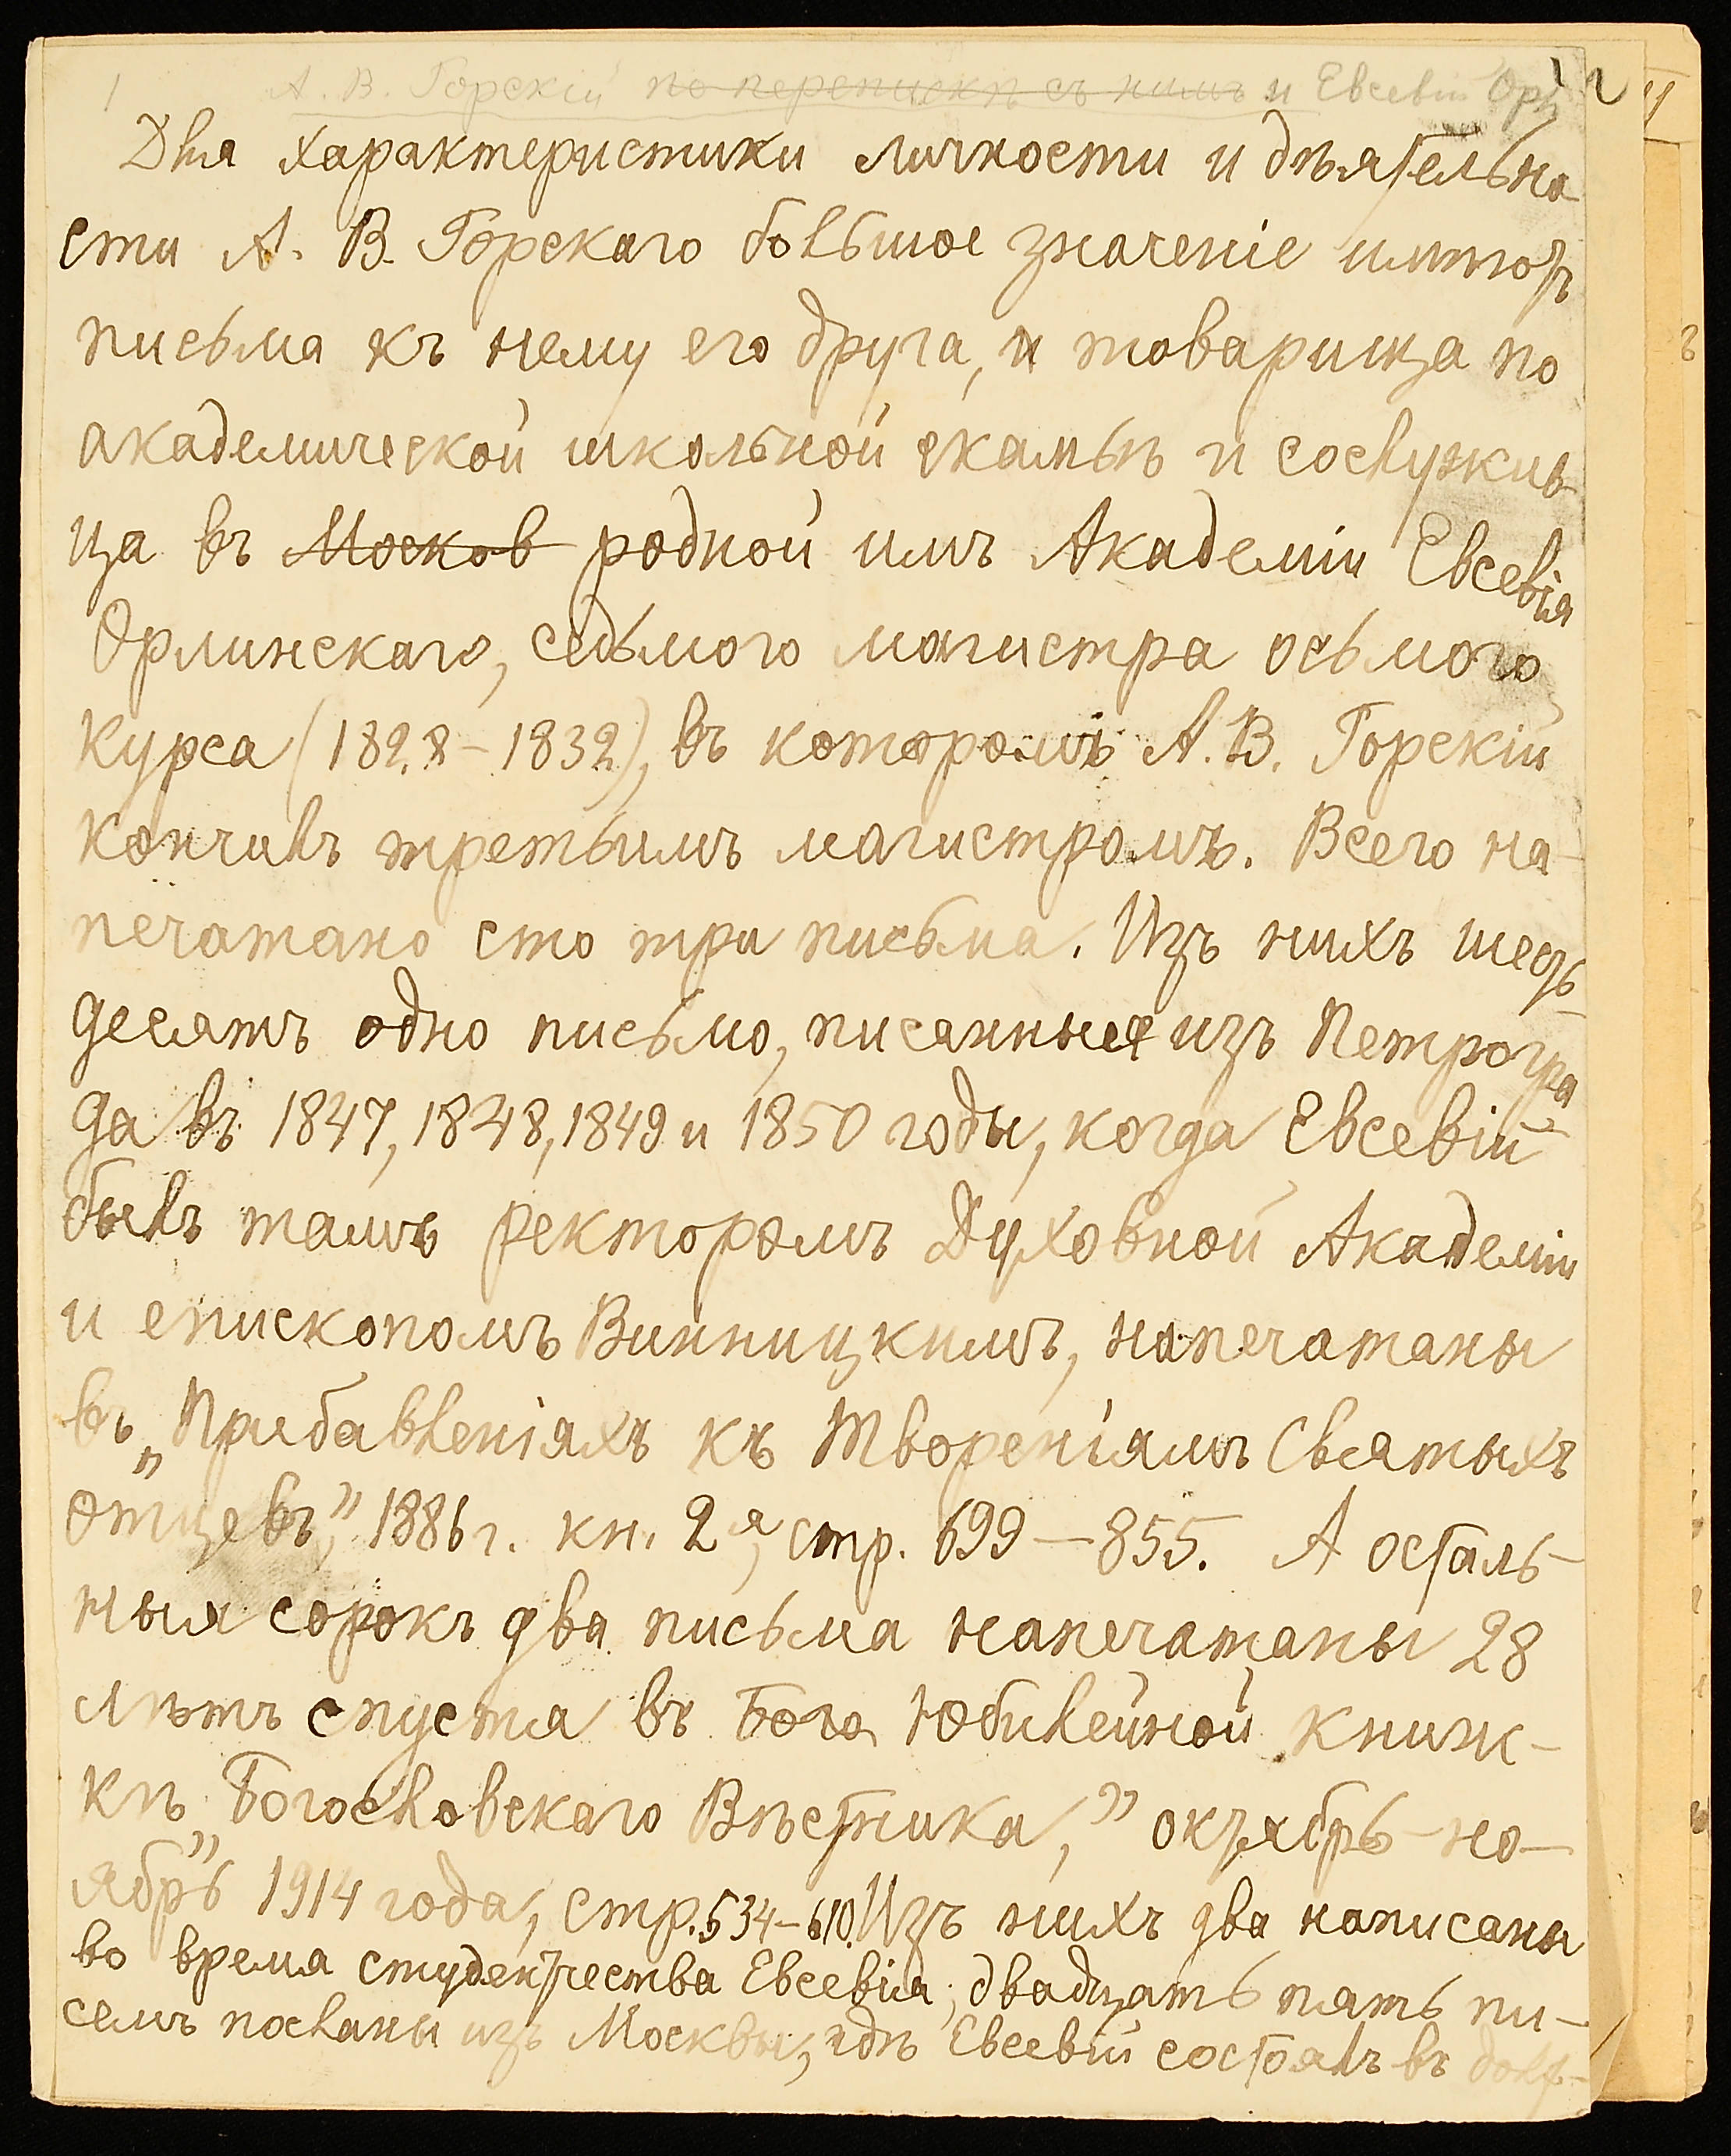 1 А. В. Горскій по перепискѣ съ нимъ и Евсевій Орл
Для характеристики личности и дѣятельно
сти А. В. Горскаго большое значеніе имѣют
письма къ нему его друга, и товарища по
академической школьной скамьѣ и сослужив-
ца въ Москов родной имъ Академіи Евсевія
Орлинскаго, седьмого магистра осьмого
курса (1828–1832), въ которомъ А. В. Горскій
кончилъ третьимъ магистромъ. Всего на-
печатано сто три письма. Изъ нихъ шесть-
десятъ одно письмо, писанныя изъ Петрогра
да въ 1847, 1848, 1849 и 1850 годы, когда Евсевій
былъ тамъ ректоромъ Духовной Академіи
и епископомъ Винницкимъ, напечатаны
въ „Прибавленіяхъ къ Твореніямъ Святыхъ
Отцевъ," 1886 г. кн. 2я, стр. 699–855. А осталь-
ныя сорокъ два письма напечатаны 28
лѣтъ спустя въ Бого Юбилейной книж-
кѣ „Богословскаго Вѣстника," октябрь-но-
ябрь 1914 года, стр. 534–610. Изъ нихъ два написаны
во время студенчества Евсевія, двадцать пять пи-
семъ посланы изъ Москвы, гдѣ Евсевій состоялъ въ